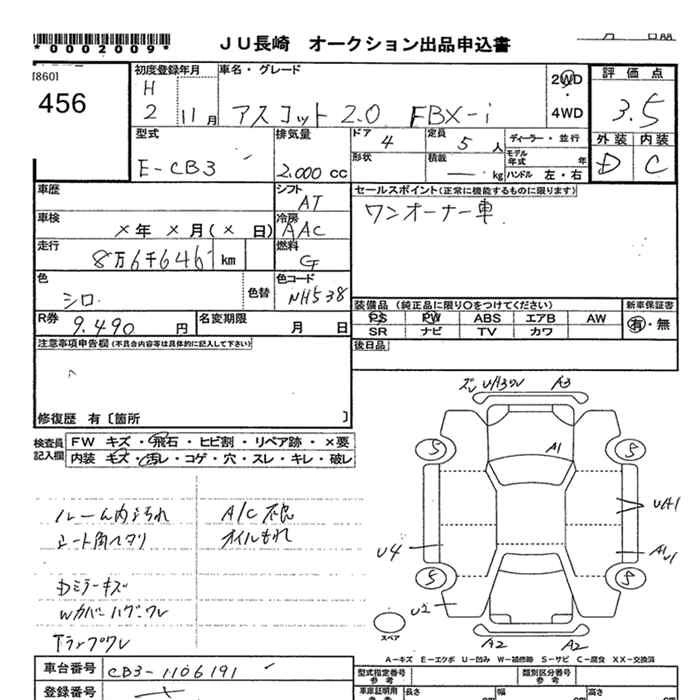 *0002009*
JU長崎 オークション出品申込書
[860]
456
初度登録年月
H
2 11月
車名・グレード
アスコット 2.0 FBX-i
2WD
4WD
評価点
3.5
外装 内装
D C
型式
E-CB3
排気量
2.000 cc
ドア 4
定員 5 人
ディーラー・並行
形状
積載 kg
モデル年式 年
ハンドル 左・右
車歴
シフト
AT
セールスポイント(正常に機能するものに限ります)
ワンオーナー車
車検
×年 ×月(× 日)
冷房
AAC
走行
8万6千646 km
燃料
G
色
シロ
色替
色コード
NH538
装備品 (純正品に限り〇をつけてください)
新車保証書
PS PW ABS エアB AW
SR ナビ TV カワ
有・無
R券
9.490 円
名変期限
月 日
後日品
注意事項申告欄(不具合内容等は具体的に記入して下さい)
修復歴 有〔箇所 〕
検査員記入欄
FW キズ・飛石・ヒビ割・リペア跡・×要
内装 キズ・汚レ・コゲ・穴・スレ・キレ・破レ
ルーム内汚れ
シート角ヘタリ
A/C不良
オイルもれ
Dミラーキズ
Wカバーハグ・ワレ
Tランプワレ
A3
A1
5 5
U4
5 5
U2
A2 A2
スペア
A-キズ E-エクボ U-凹み W-補修跡 S-サビ C-腐食 XX-交換済
車台番号
CB3-1106191
登録番号
型式指定番号
参考
類別区分番号
参考
車庫証明用
参考
長さ
幅
高さ